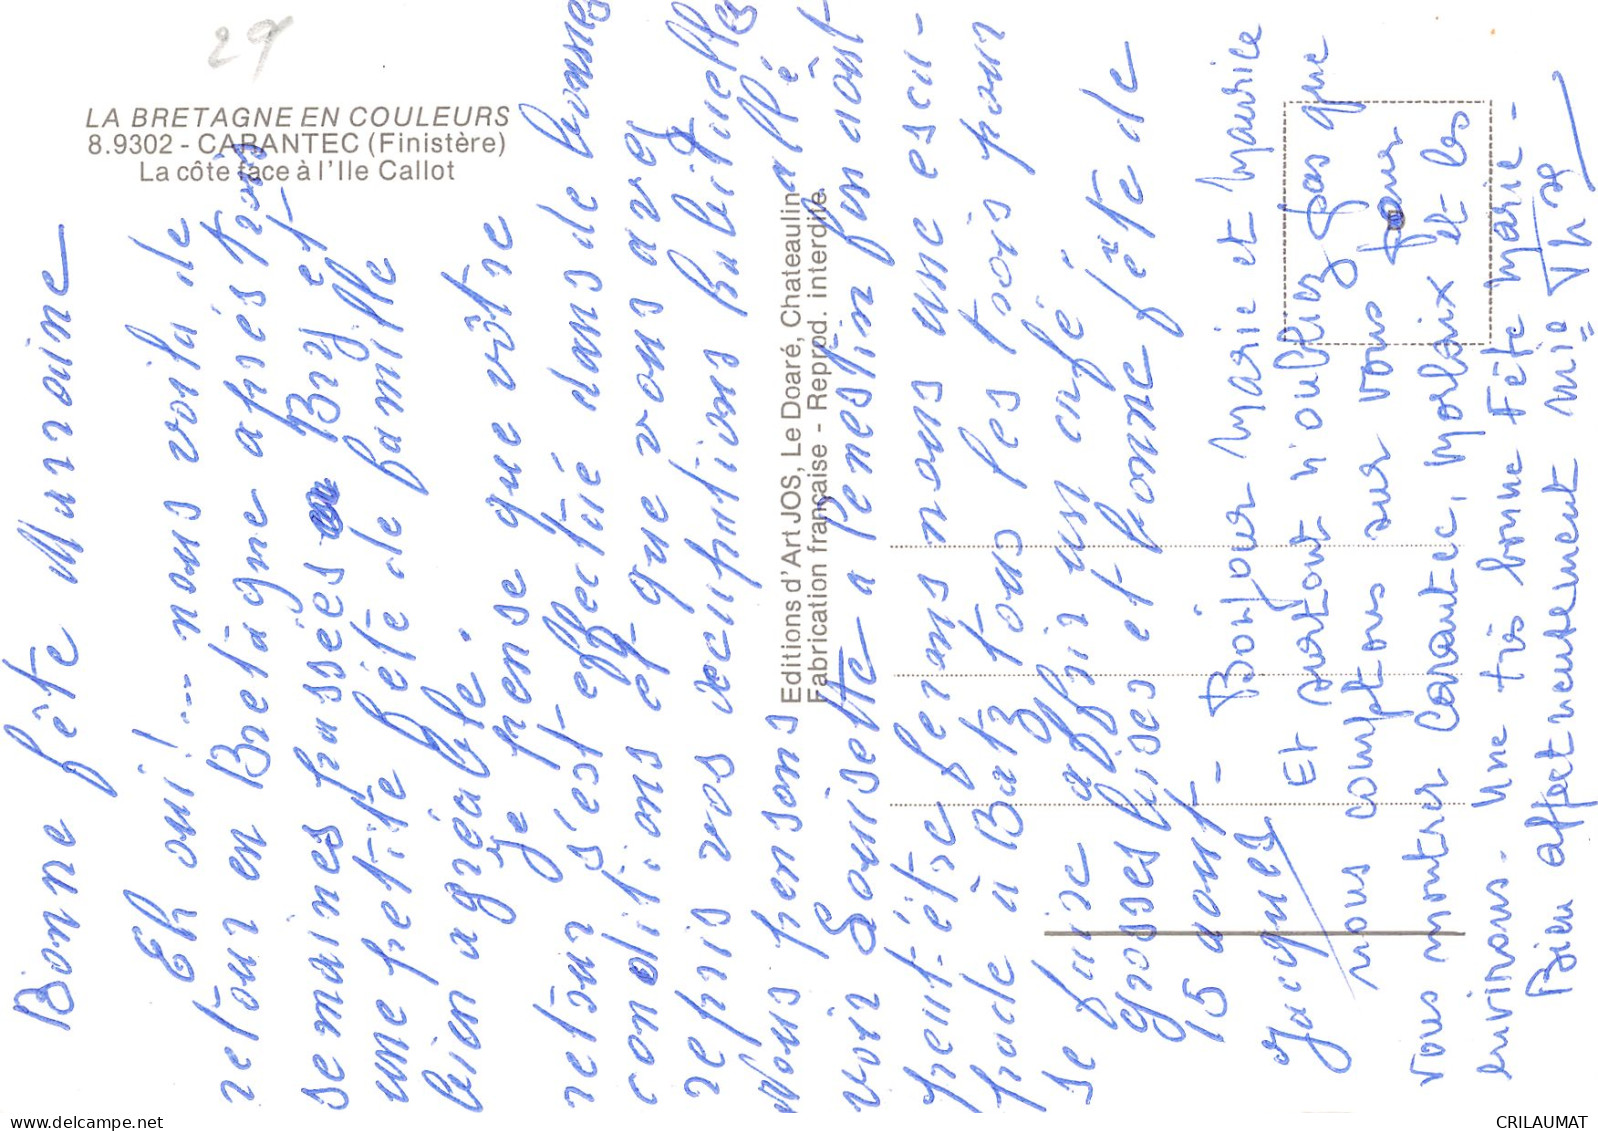 29
LA BRETAGNE EN COULEURS
8.9302 - CARANTEC (Finistère)
La côte face à l'Ile Callot
Editions d'Art JOS, Le Doaré, Chateaulin
Fabrication française - Reprod. interdite
Bonne fête Marraine
Eh oui!... nous voila de
retour en Bretagne après trois
semaines passées à Bry et
une petite fête de famille
bien agréable.
Je pense que vôtre
retour s'est effectué dans de bonnes
conditions et que vous avez
repris vos occupations habituelles
Nous pensons allé
voir Louisette a Penestin fin aout
peut-être ferons nous une esca-
pade à Batz tous les trois pour
se faire affrir un café
Grosses bises et bonne fête de
15 aout -
Jacques
Bonjour Marie et Maurice
Et surtout n'oubliez pas que
nous comptons sur vous pour
vous montrer Carantec, Morlaix et les
environs. Une très bonne Fête Marie -
Bien affectueusement Mie Thse
CRILAUMAT